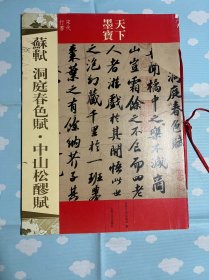 天下
墨寶
宋代
行書
蘇軾 洞庭春色賦·中山松醪賦
洞庭春色賦
吾聞橘中之樂不減商
山豈霜餘之不食而四老
人者游戲於其間悟此世
之泡幻藏千里於一班舉
棗葉之有餘納芥子其